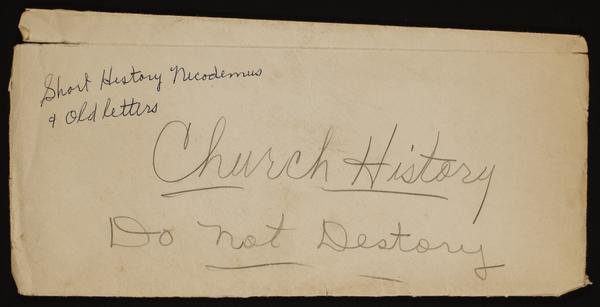 Short History Nicodemus
& Old letters
Church History
Do Not Destory